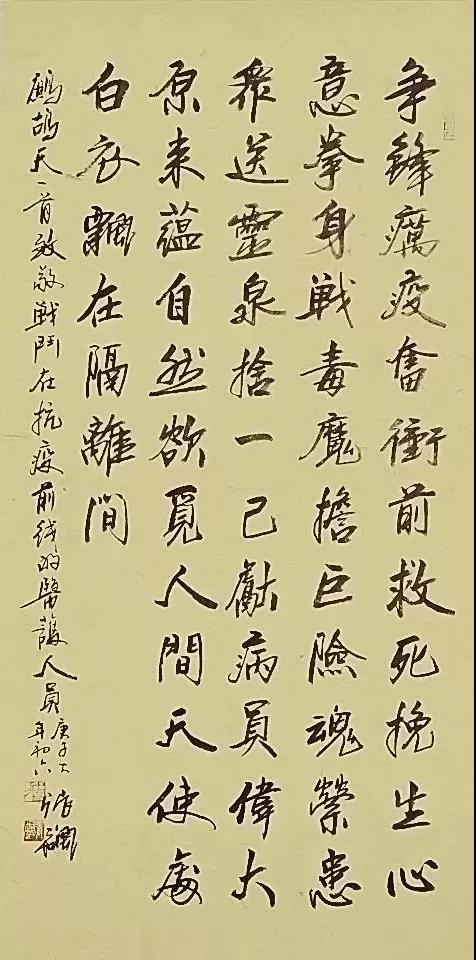 争鋒癘疫奮衝前救死挽生心
意拳身戦毒魔擔巨險魂縈患
眾送靈泉捨一己獻病員偉大
原来蘊自然欲覓人間天使處
白衣飄在隔離間
鷓鴣天一首致敬戦鬥在抗疫前线的醫護人員
庚子大
年初六